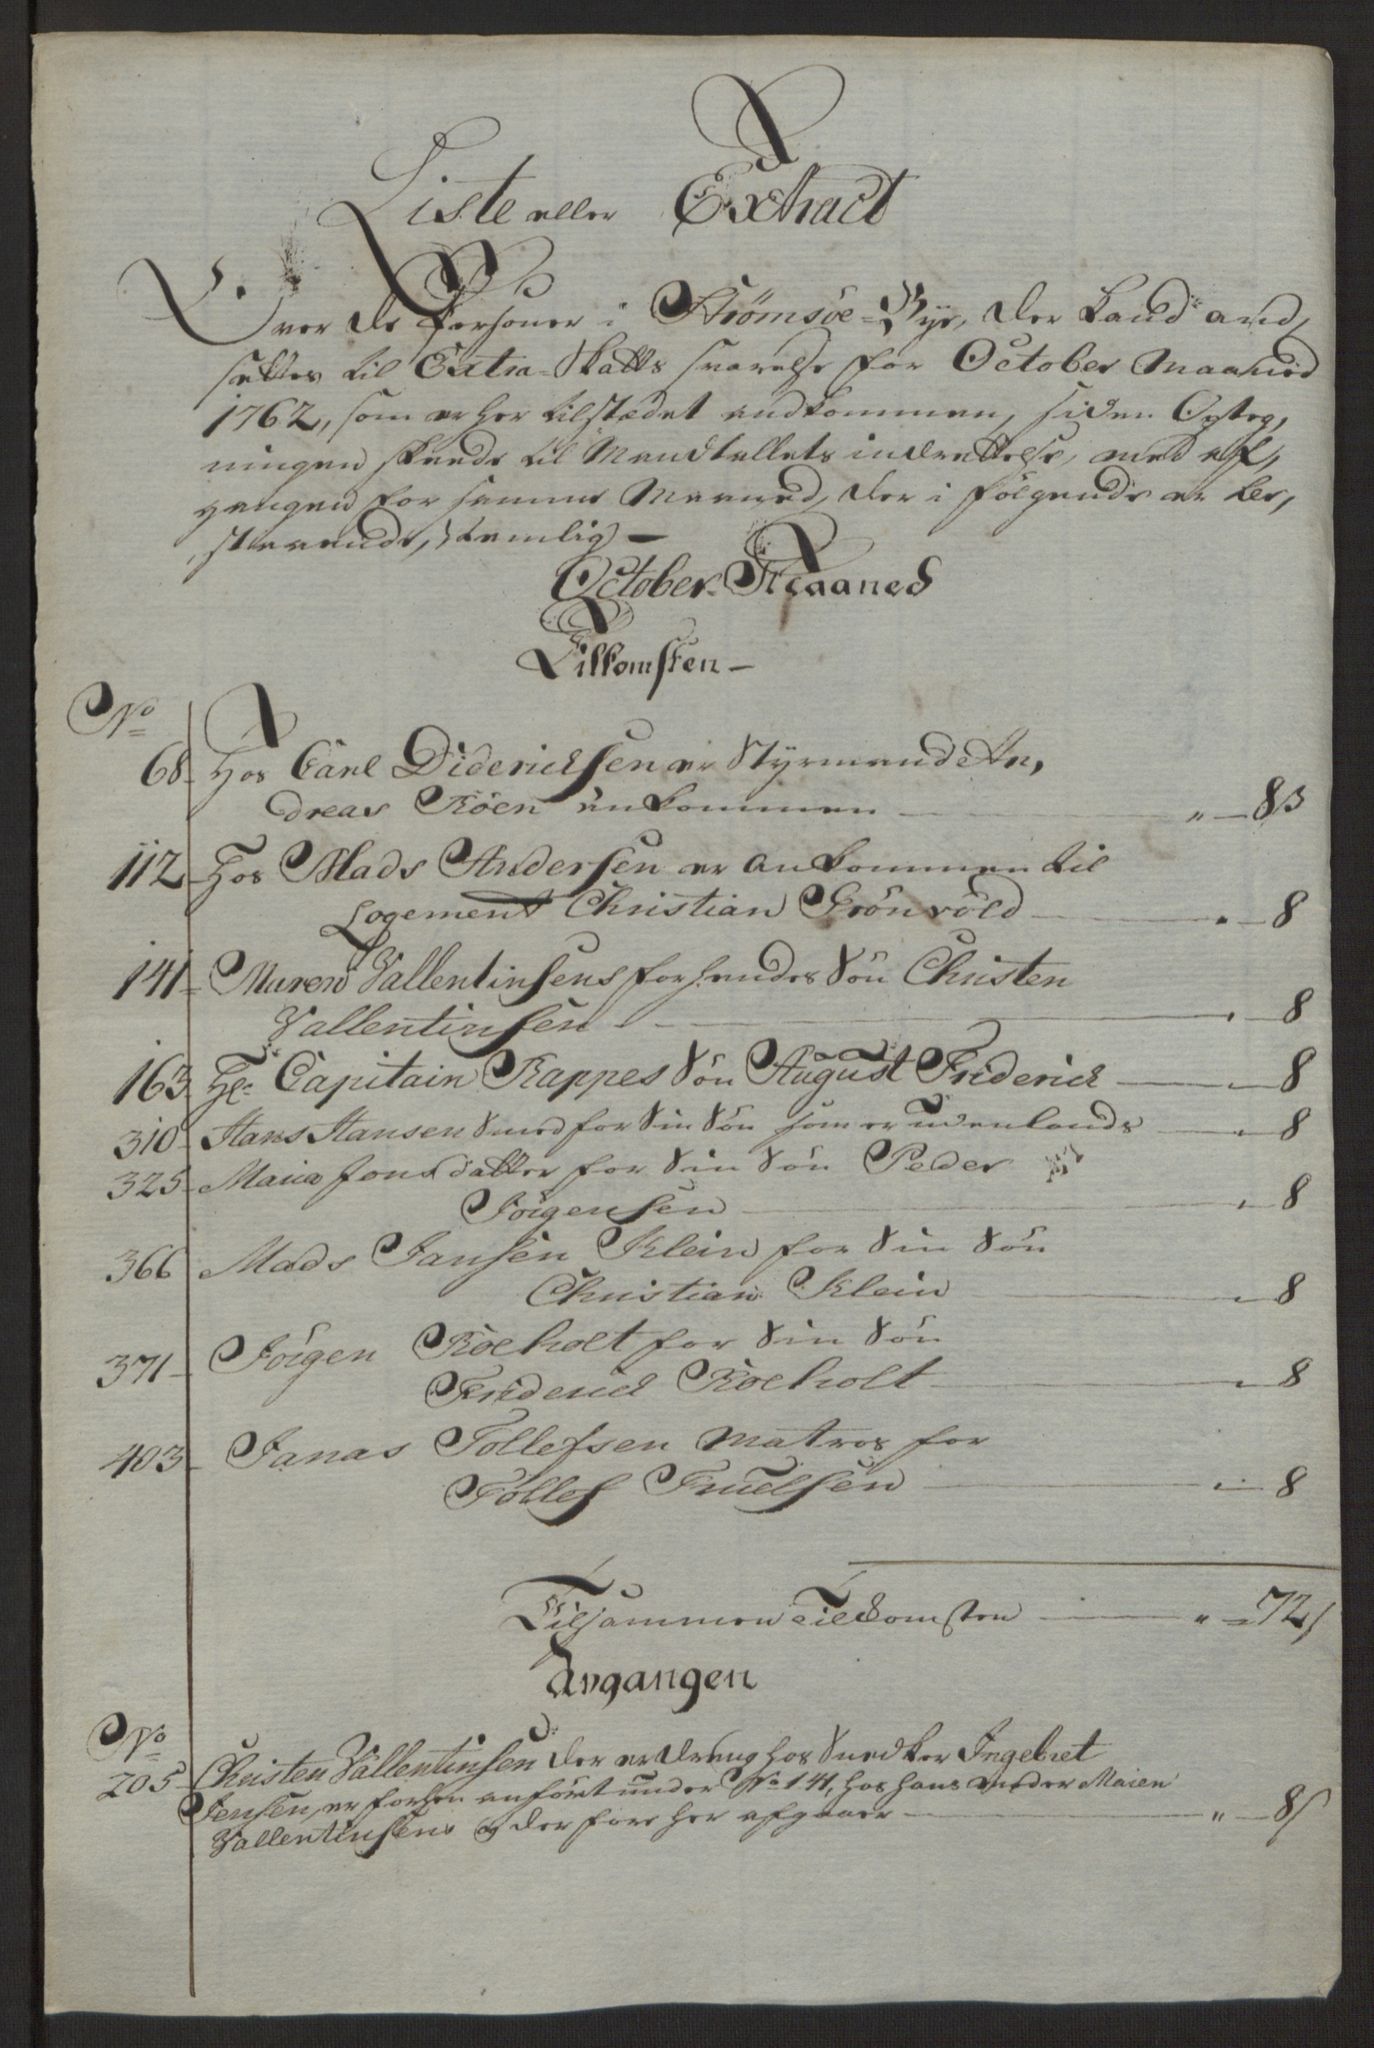 Liste eller Extract
Over de Personer i Strømsøe-Bye, der kand and,
sættes til Extra-Skatts svarelse for October Maaned
1762, som er her tilstædet ankommen, siden Opteg,
ningen skeede til Mandtallets indrettelse, med af,
gangen for samme Maaned, der i følgende er be,
staaende, Nemlig
October Maaned
Tilkomsten
No
68 Hos Carl Didericksen er Styrmand An,
dreas Röen ankommen " 8 s
112 Hos Mads Andersen er ankommen til
Logement Christian Grönvold " 8
141 Maren Vallentinsens for hendes Sön Christen
Vallentinsen " 8
163 Hr Capitain Rappes Sön August Friderick " 8
310 Hans Hansen Smed for Sin Sön som er udenlands " 8
325 Maria Jonsdatter for Sin Sön Peder
Jörgensen " 8
366 Mads Jansen Klein for Sin Sön
Christian Klein " 8
371 Jörgen Roeholt for Sin Sön
Friderick Roeholt " 8
403 Janas Tollefsen Matros for
Tollef Truelsen " 8
Tilsammen Tilkomsten " 72 s
Avgangen
No
205 Christen Vallentinsen der er dreng hos Snedker Ingebret
Jensen, er forhen anfört under No 141, hos hans moder Maren
Vallentinsens og derfore her afgaaer " 8 s